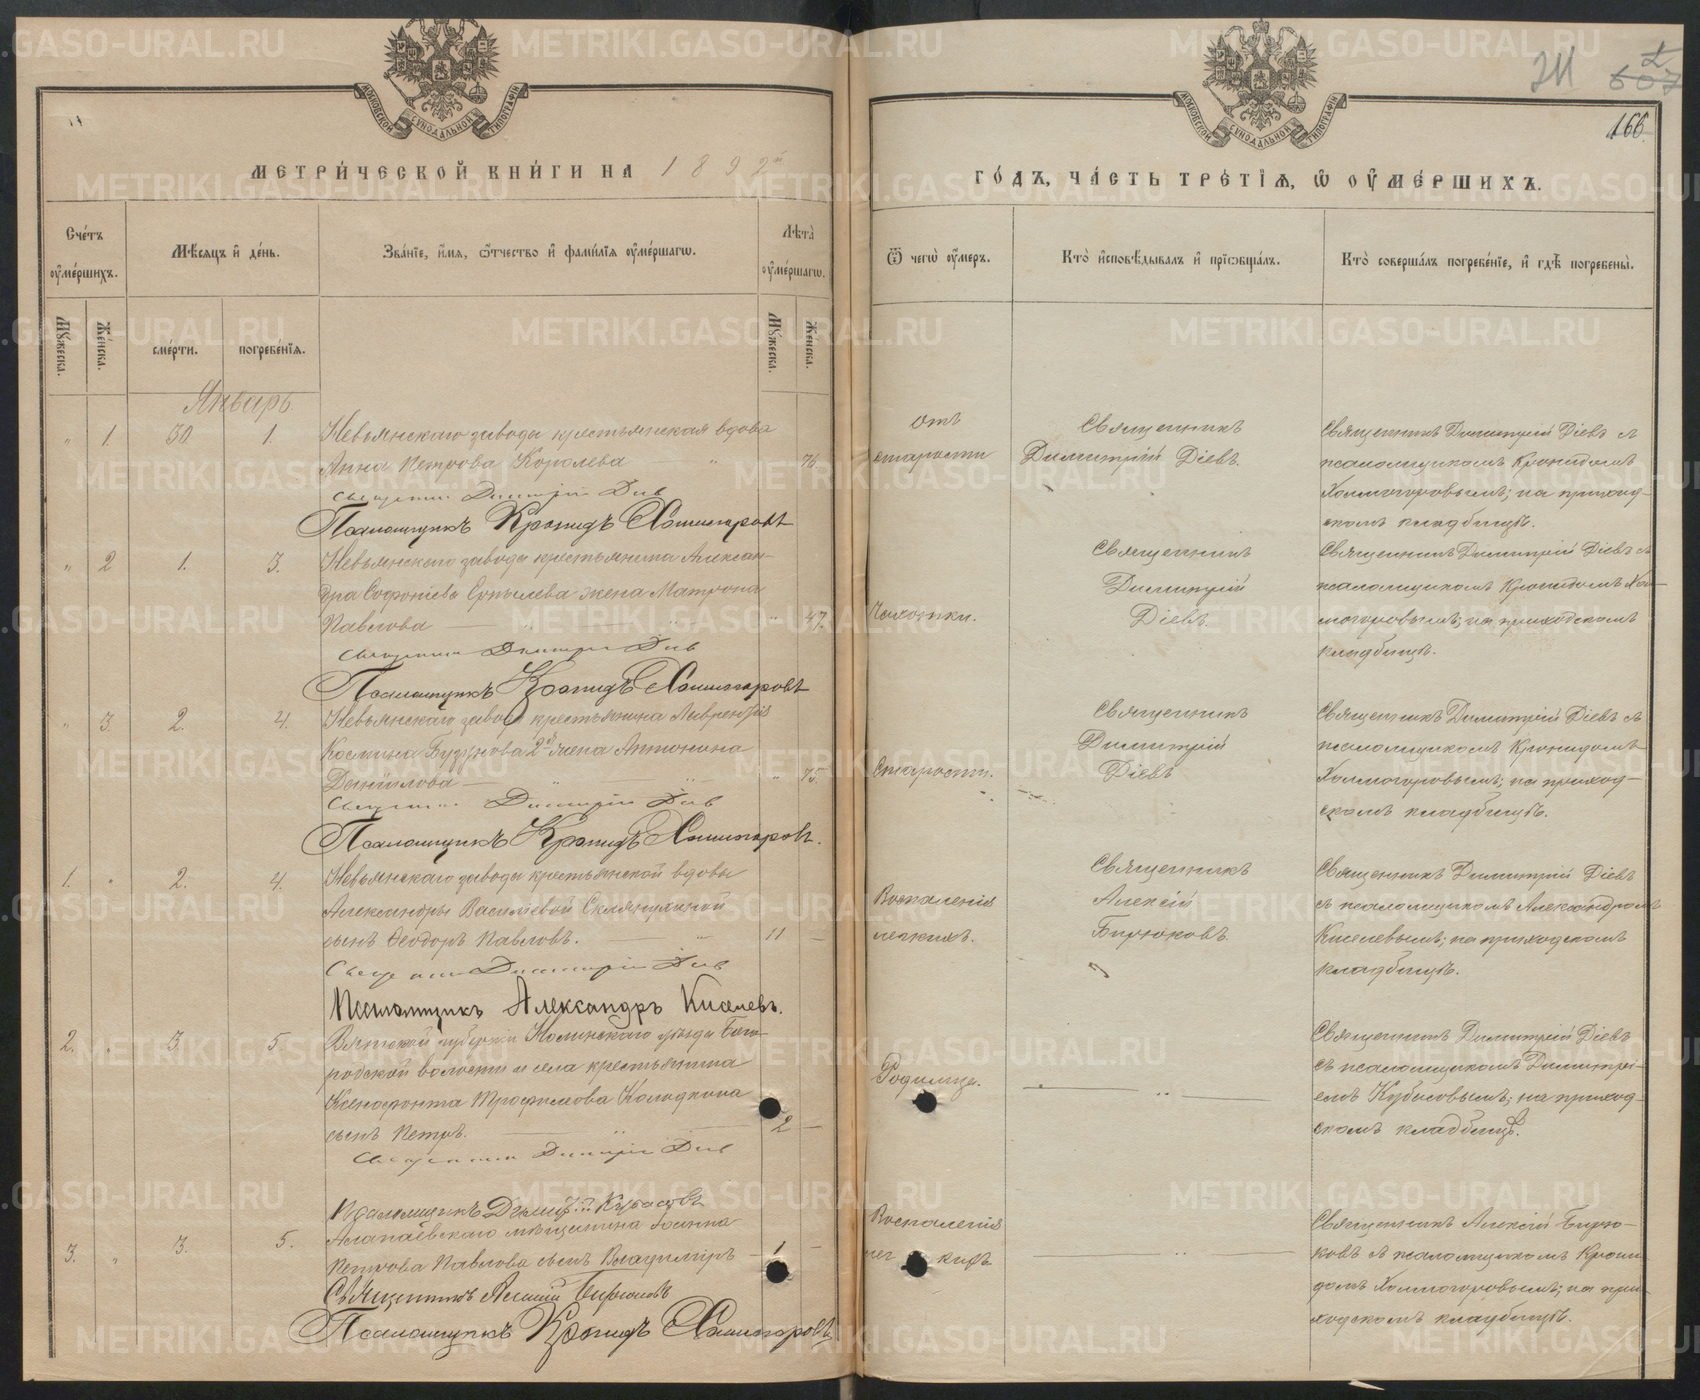 МЕТРИ́ЧЕСКОЙ КНИ́ГИ НА 1892й
ГО́ДЪ, ЧА́СТЬ ТРЕ́ТІѦ, Ѡ҆ ОУ҆МЕ́РШИХЪ.
166.
Сче́тъ оу҆ме́ршихъ.
Мѣ́сяцъ и҆ де́нь.
Зва́нїе, и҆́мѧ, ѻ҆́тчество и҆ фами́лїѧ оу҆ме́ршагѡ.
Лѣ́та оу҆ме́ршагѡ.
Ѿ чегѡ̀ оу҆́меръ.
Кто̀ и҆сповѣ́дывалъ и҆ прїѡбща́лъ.
Кто̀ соверша́лъ погребе́нїе, и҆ гдѣ̀ погребены̀.
Мꙋ́жеска.
Же́нска.
сме́рти.
погребе́нїѧ.
Мꙋ́жеска.
Же́нска.
Январь.
" 1. 30. 1. Невьянскаго завода крестьянская вдова
Анна Петрова Королева " 76
Священникъ Димитрій Діевъ
Псаломщикъ Кронидъ Холмогоровъ
отъ
старости
Священникъ
Димитрій Діевъ.
Священникъ Димитрій Діевъ съ
псаломщикомъ Кронидомъ
Холмогоровымъ; на приход-
скомъ кладбищѣ.
" 2 1. 3. Невьянскаго завода крестьянина Алексан-
дра Софоніева жена Матрона
Павлова " " 47.
Священникъ Димитрій Діевъ
Псаломщикъ Кронидъ Холмогоровъ
Чахотки.
Священникъ
Димитрій
Діевъ.
Священникъ Димитрій Діевъ съ
псаломщикомъ Кронидомъ Хол-
могоровымъ; на приходскомъ
кладбищѣ.
" 3. 2. 4. Невьянскаго завода крестьянина Лаврентія
Космина 2я жена Антонина
Данилова " " 75.
Священникъ Димитрій Діевъ
Псаломщикъ Кронидъ Холмогоровъ.
Старости.
Священникъ
Димитрій
Діевъ
Священникъ Димитрій Діевъ съ
псаломщикомъ Кронидомъ
Холмогоровымъ; на приход-
скомъ кладбищѣ.
1. " 2. 4. Невьянскаго завода крестьянской вдовы
Александры Васильевой
сынъ Ѳеодоръ Павловъ. " 11
Священникъ Димитрій Діевъ
Псаломщикъ Александръ Киселевъ.
Воспаленія
легкихъ.
Священникъ
Алексій
Бирюковъ.
Священникъ Димитрій Діевъ
съ псаломщикомъ Александромъ
Киселевымъ; на приходскомъ
кладбищѣ.
2. " 3. 5. Вятской губерніи Нолинскаго уѣзда Бого-
родской волости и села крестьянина
Ксенофонта Трофимова Колодкина
сынъ Петръ. " 2
Священникъ Димитрій Діевъ
Псаломщикъ Димитрій Кубасовъ
Родимца.
"
Священникъ Димитрій Діевъ
съ псаломщикомъ Димитрі-
емъ Кубасовымъ; на приход-
скомъ кладбищѣ.
3. " 3. 5. Алапаевскаго мѣщанина Іоанна
Петрова Павлова сынъ Владиміръ 1
Священникъ Алексій Бирюковъ
Псаломщикъ Кронидъ Холмогоровъ
Воспаленія
легкихъ.
"
Священникъ Алексій Бирю-
ковъ съ псаломщикомъ Крони-
домъ Холмогоровымъ; на при-
ходскомъ кладбищѣ.
METRIKI.GASO-URAL.RU